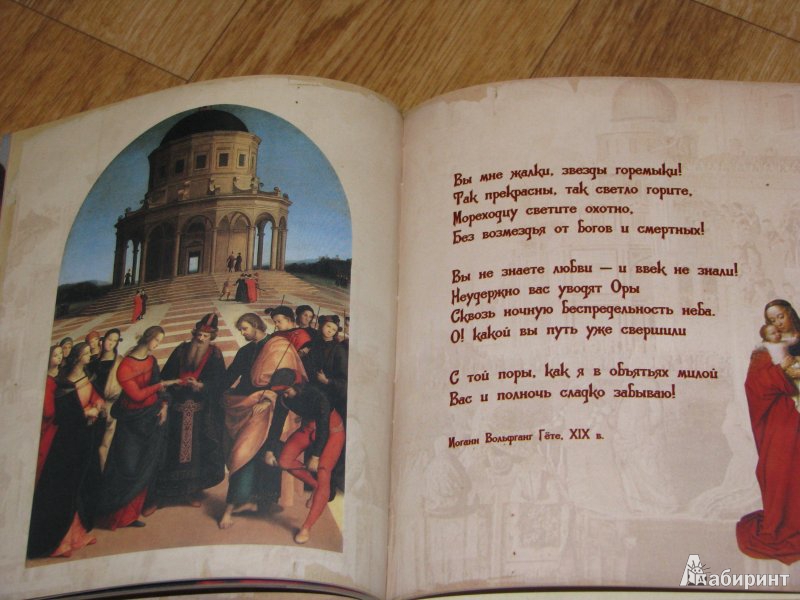 Вы мне жалки, звезды горемыки!
Так прекрасны, так светло горите,
Мореходцу светите охотно,
Без возмездья от богов и смертных!
Вы не знаете любви — и ввек не знали!
Неудержно вас уводят Оры
Сквозь ночную беспредельность неба.
О! какой вы путь уже свершили
С той поры, как я в объятьях милой
Вас и полночь сладко забываю!
Иоганн Вольфганг Гёте, XIX в.
Лабиринт